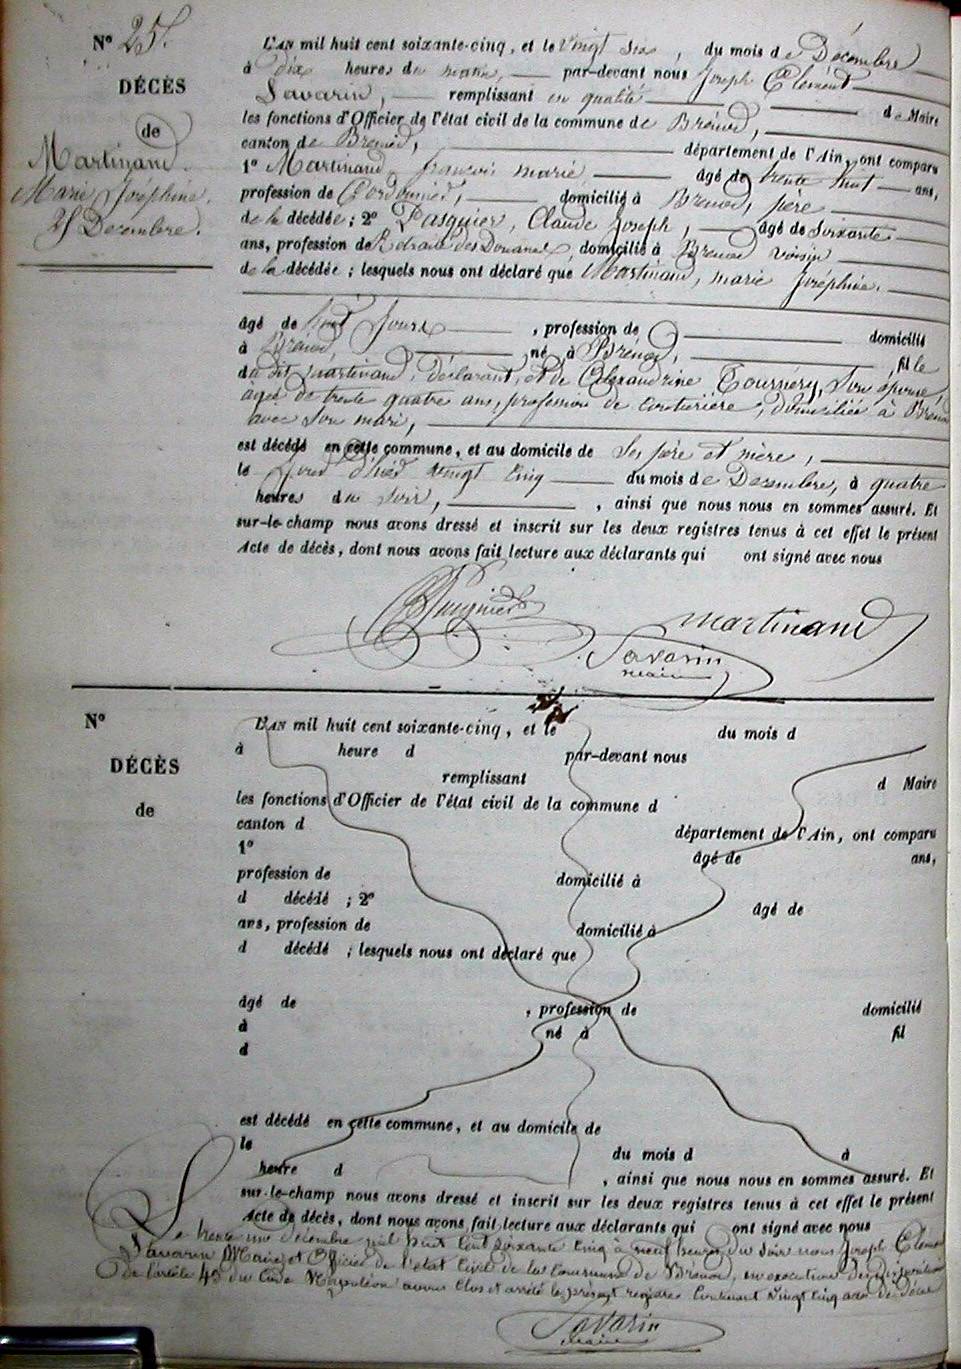 N° 25.
DÉCÈS
de
Martinand
Marie Joséphine.
25 Decembre.
L'AN mil huit cent soixante-cinq, et le vingt six, du mois de Décembre
à dix heures du matin, par-devant nous Joseph Clément
Savarin, remplissant en qualité de Maire
les fonctions d'Officier de l'état civil de la commune de Brénod,
canton de Brénod, département de l'Ain, ont comparu
1° Martinand françois marie âgé de trente huit ans,
profession de Cordonnier, domicilié à Brénod, père
de la décédée ; 2° Pasquier, Claude Joseph, âgé de soixante
ans, profession de Retraité des Douanes, domicilié à Brénod voisin
de la décédée ; lesquels nous ont déclaré que Martinand, marie Joséphine.
âgé de huit Jours, profession de domicilié
à Brénod, né à Brénod, fille
du dit Martinand, déclarant, et de Alexandrine Tournéry, son épouse,
âgée de trente quatre ans, profession de couturière, domiciliée à Brénod
avec son mari,
est décédé en cette commune, et au domicile de ses père et mère,
le jour d'hier vingt cinq du mois de Decembre, à quatre
heures du soir, , ainsi que nous nous en sommes assuré. Et
sur-le-champ nous avons dressé et inscrit sur les deux registres tenus à cet effet le présent
Acte de décès, dont nous avons fait lecture aux déclarants qui ont signé avec nous
martinand
Savarin
maire
N°
DÉCÈS
de
L'AN mil huit cent soixante-cinq, et le du mois d
à heure d par-devant nous
remplissant d Maire
les fonctions d'Officier de l'état civil de la commune d
canton d département de l'Ain, ont comparu
1° âgé de ans,
profession de domicilié à
d décédé ; 2° âgé de
ans, profession de domicilié à
d décédé ; lesquels nous ont déclaré que
âgé de , profession de domicilié
à né à fil
d
est décédé en cette commune, et au domicile de
le du mois d à
heure d , ainsi que nous nous en sommes assuré. Et
sur-le-champ nous avons dressé et inscrit sur les deux registres tenus à cet effet le présent
Acte de décès, dont nous avons fait lecture aux déclarants qui ont signé avec nous
Le trente une décembre mil huit cent soixante cinq à neuf heures du soir nous Joseph Clément
Savarin Maire et Officier de l'état civil de la Commune de Brénod, en execution des dispositions
de l'article 43 du Code Napoléon avons clos et arrêté le présent registre contenant vingt cinq actes de décès
Savarin
maire